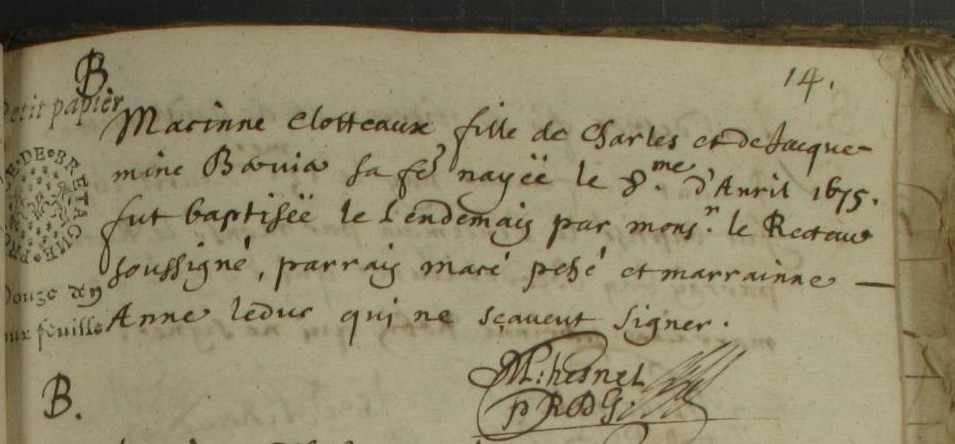 B
14.
Petit papier
Macinne Clotteaux fille de Charles et de Jacque-
mine Bouvia sa fe nayëe le 8.me d'Auril 1675.
fut baptisëe le lendemain par mons.r le Recteur
soussigné, parrain macé pehé et marrainne —
Anne leduc qui ne sçauent signer.
PRO DE BRETAGNE
Douze den
feuille
M: hesneL
p RODG.
B.